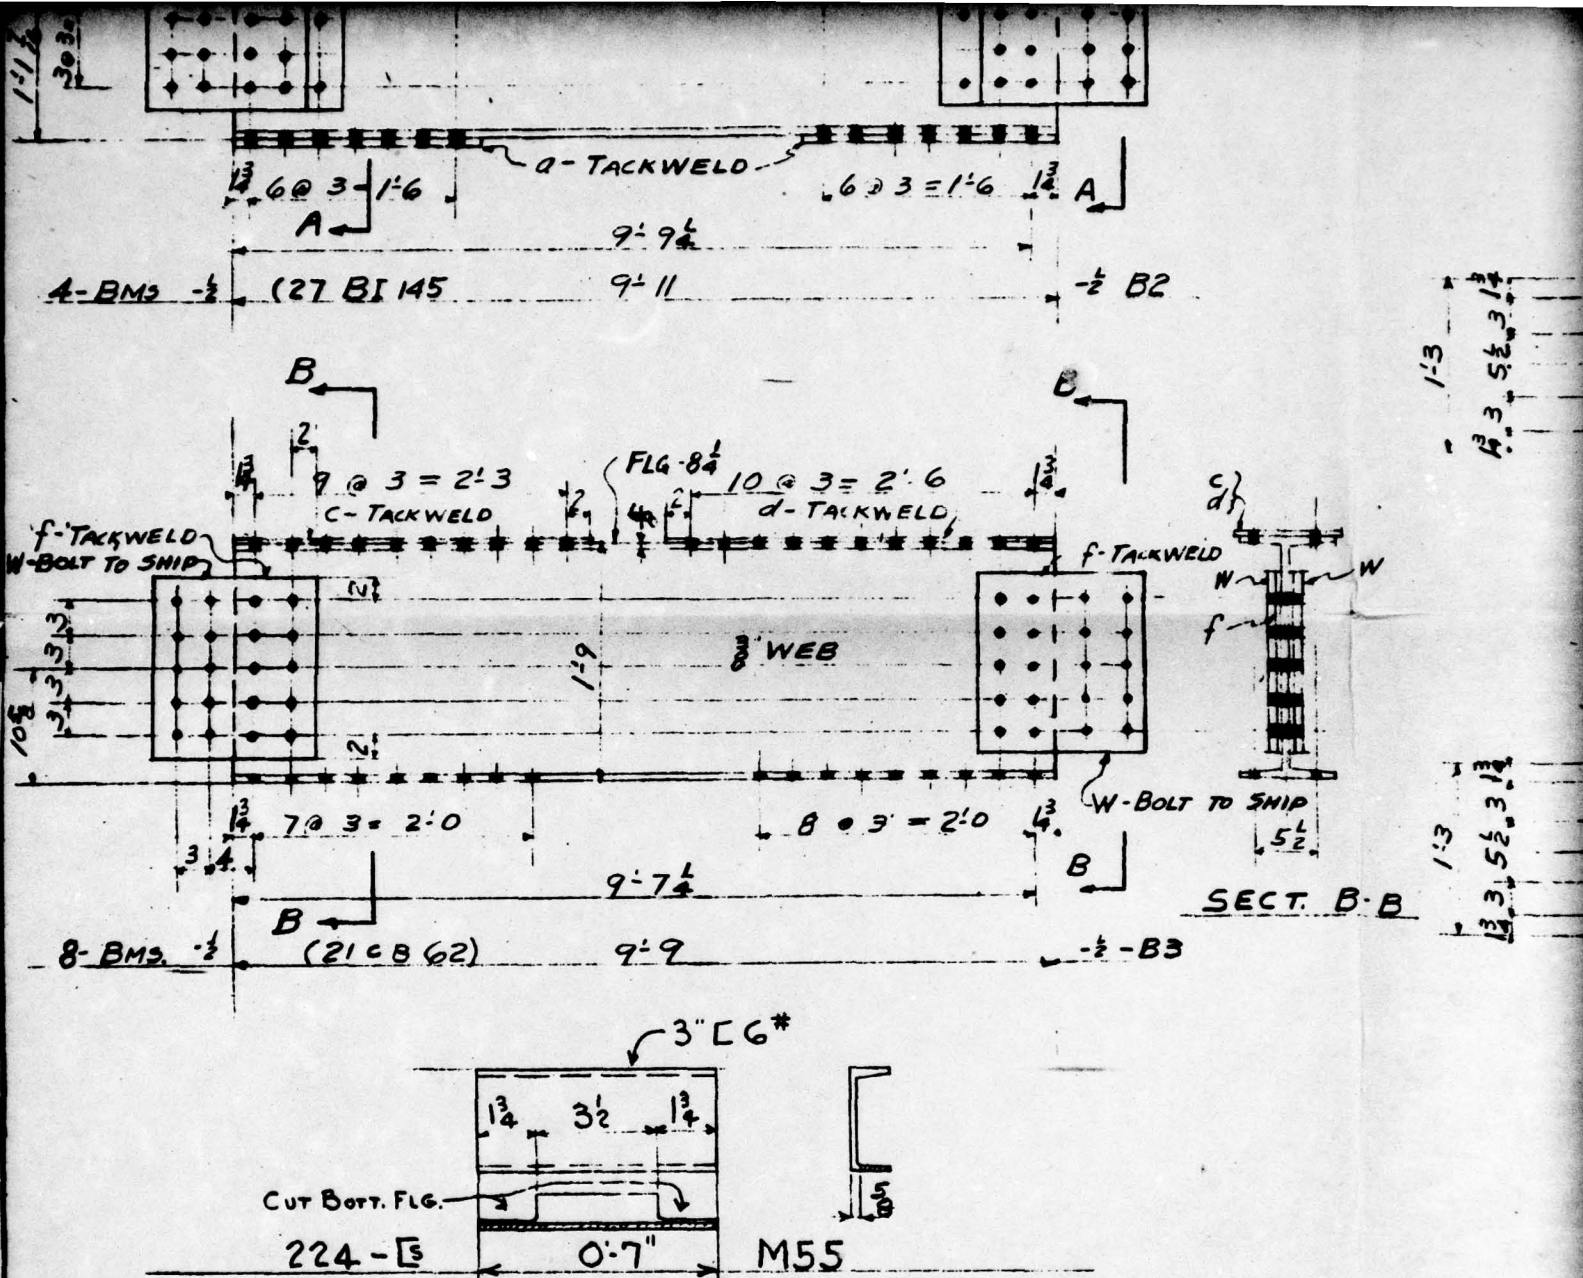 3@3
a-TACKWELD
1 3/4 6 @ 3 = 1'-6
6 @ 3 = 1'-6 1 3/4
A
A
9'-9 1/4
4-BMS -1/2 (27 BI 145 9'-11 -1/2 B2
B
B
2
1 3/4 9 @ 3 = 2'-3 2
FLG-8 1/4
2 10 @ 3 = 2'-6 1 3/4
c-TACKWELD
d-TACKWELD
f-TACKWELD
W-BOLT TO SHIP
f-TACKWELD
c
d
W
W
f
2
3 3 3 3
1'-9
3/8" WEB
2
W-BOLT TO SHIP
1 3/4 7 @ 3 = 2'-0
8 @ 3 = 2'-0 1 3/4
5 1/2
3 4
9'-7 1/4
B
B
SECT. B-B
8-BMS. -1/2 (21 CB 62) 9'-9 -1/2-B3
1'-3
1 3/4 3 5 1/2 3 1 3/4
1'-3
1 3/4 3 5 1/2 3 1 3/4
3" [ 6#
1 3/4 3 1/2 1 3/4
CUT BOTT. FLG.
5/8
224-[s 0'-7" M55